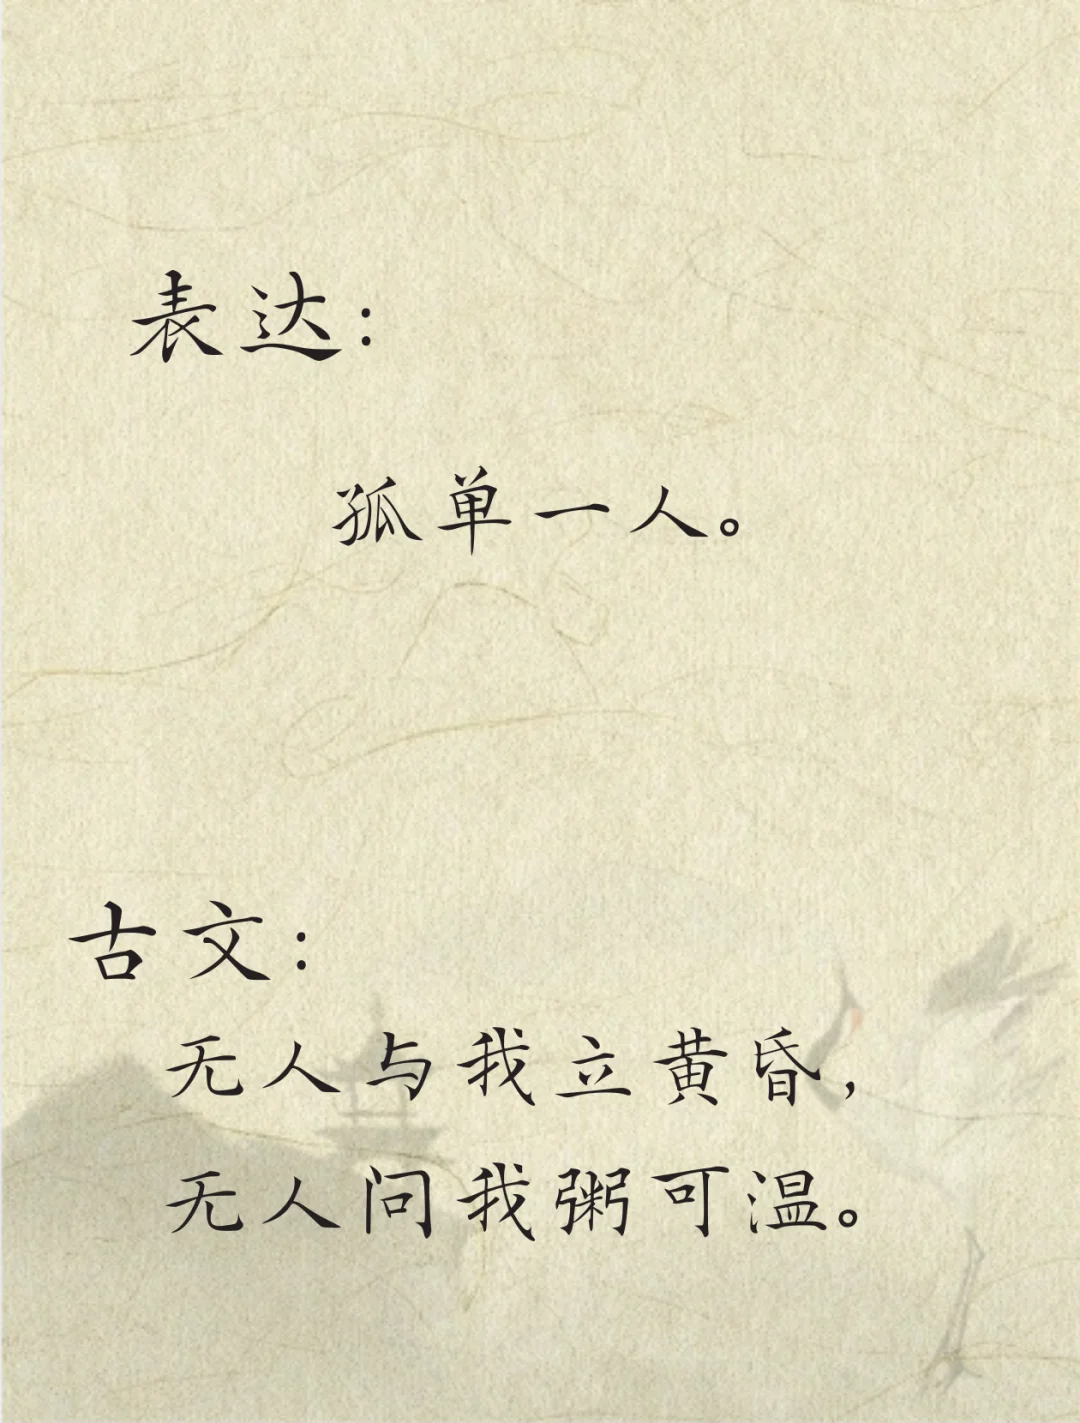 表达：
孤单一人。
古文：
无人与我立黄昏，
无人问我粥可温。